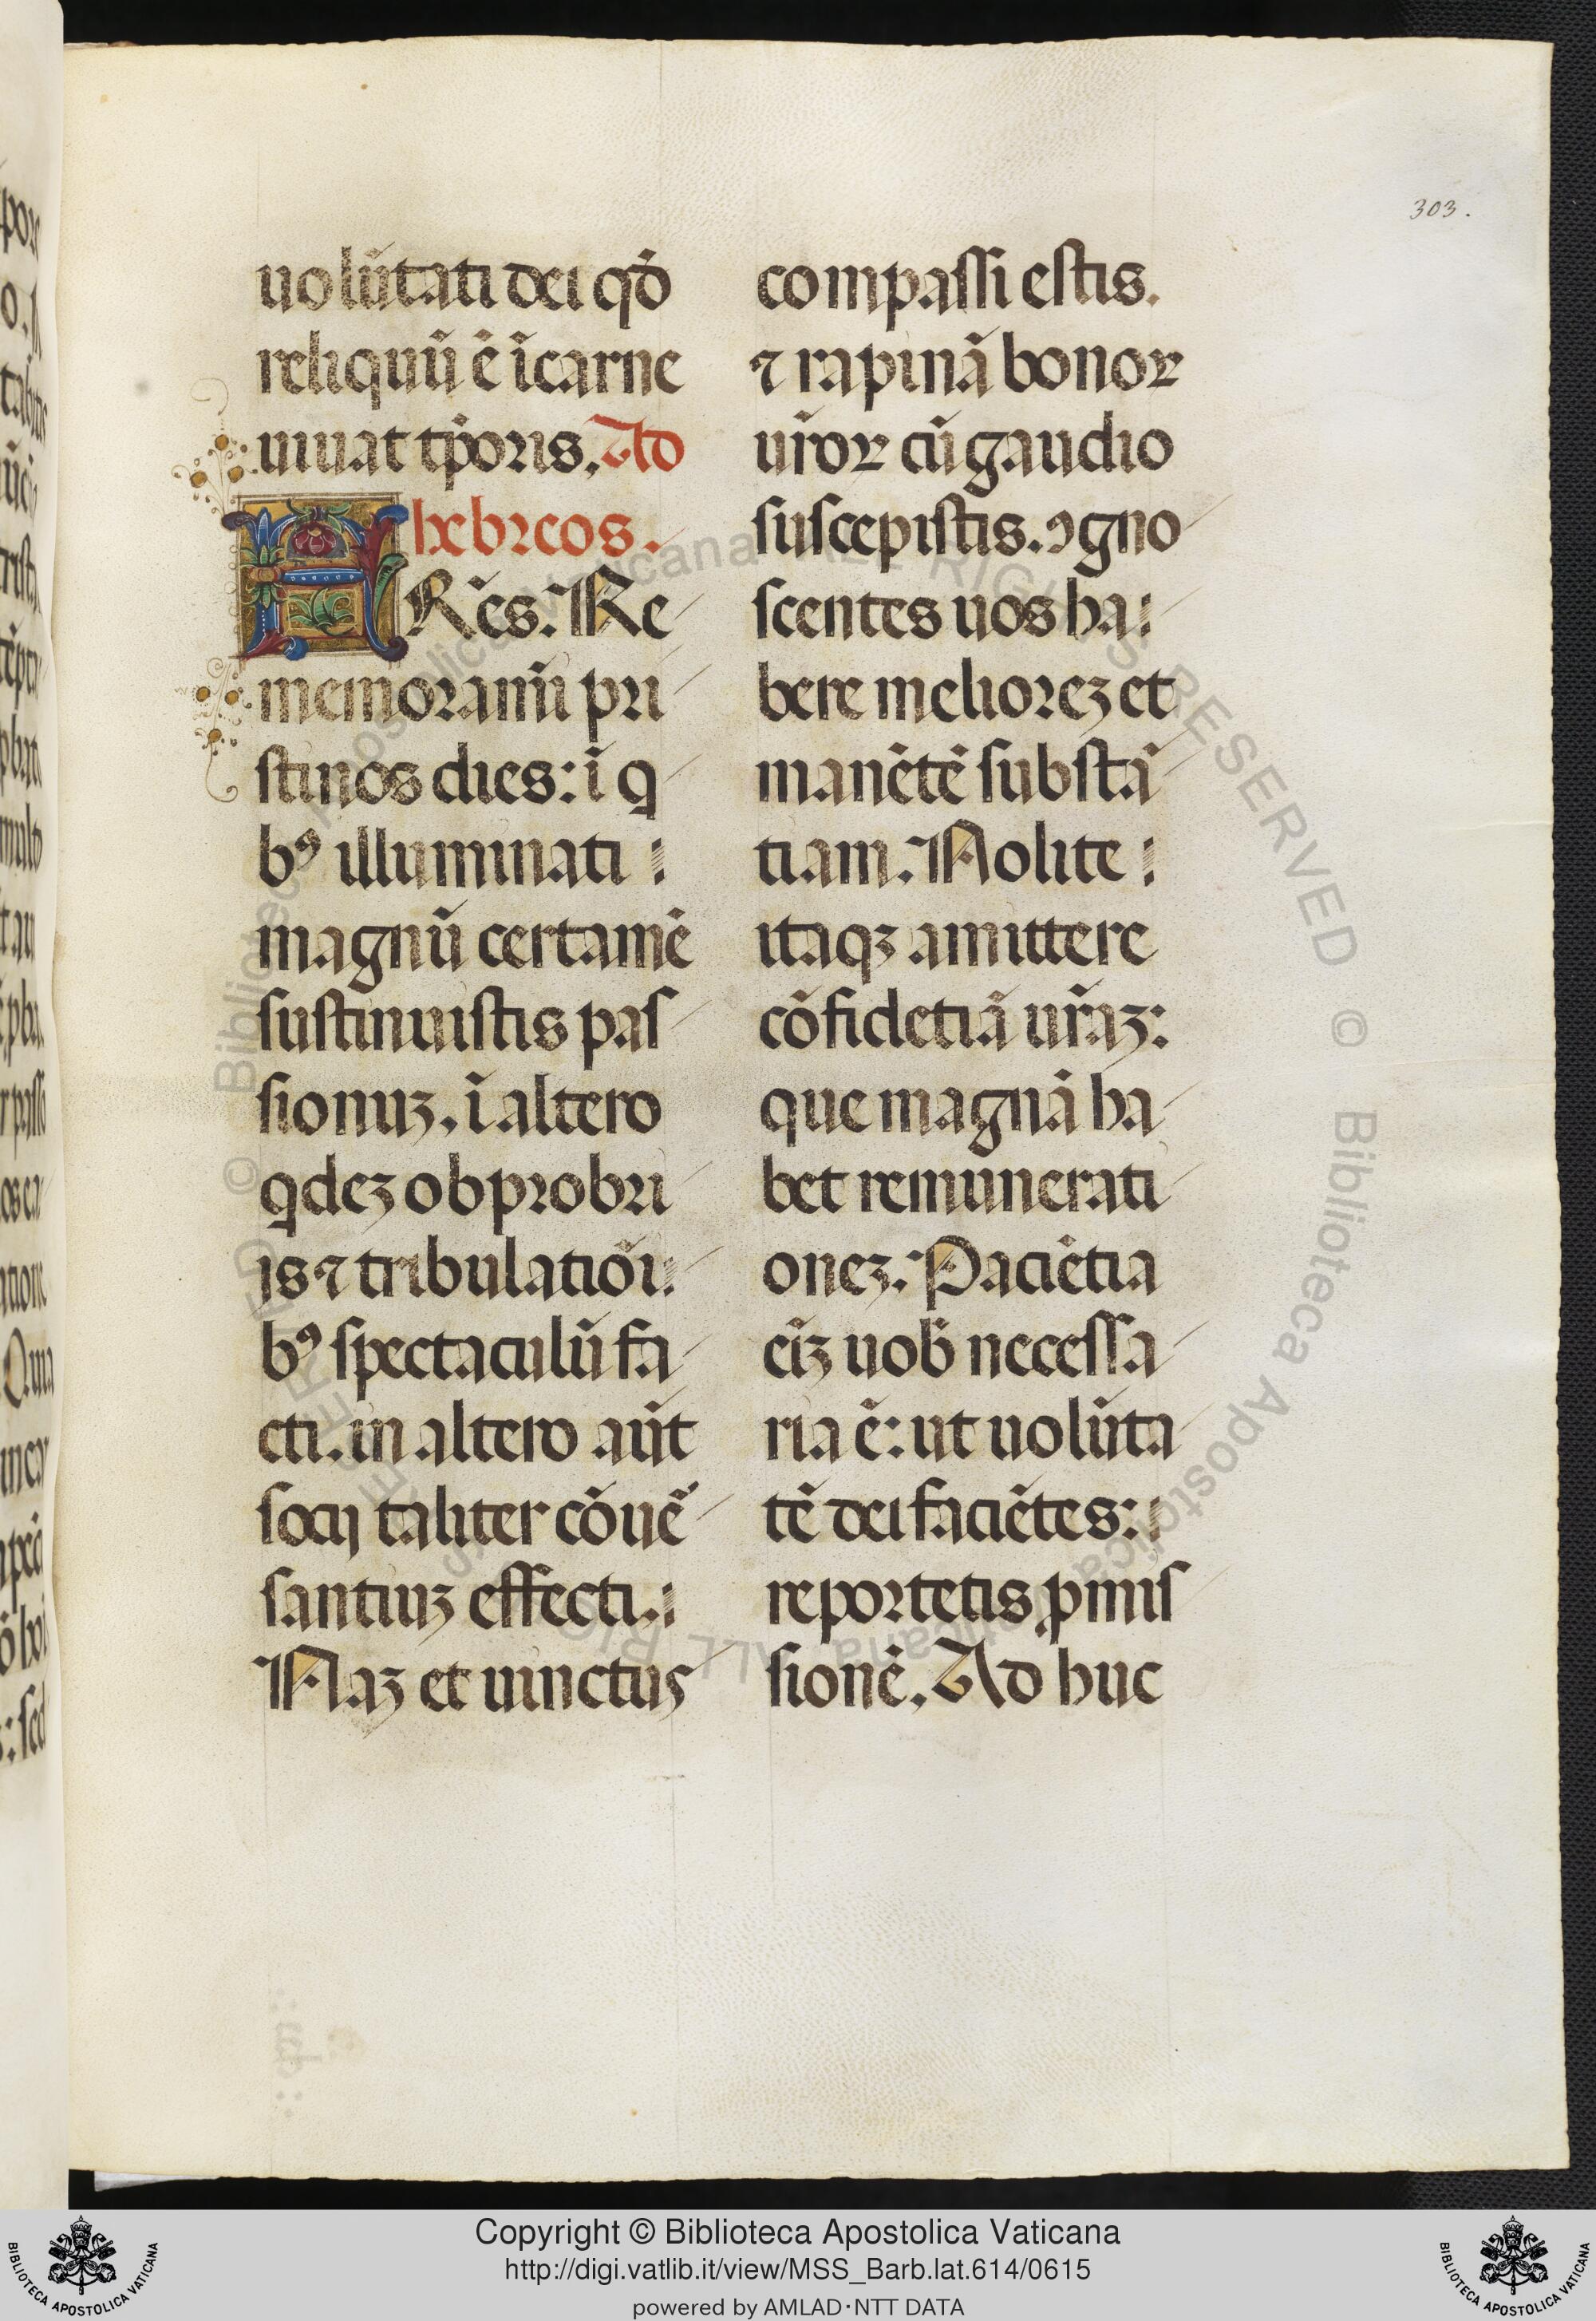 303.
uolũtati dei qđ
reliquũ ẽ ĩ carne
uiuat tp̃oris. Ad
hebreos.
FRẽs: Re
memoramĩ pri
stinos dies: ĩ q
bꝰ illuminati
magnũ certamẽ
sustinuistis pas
sionuꝫ. ĩ altero
qdeꝫ obprobri
is ⁊ tribulatiõi
bꝰ spectaculũ fa
cti. in altero aũt
socij taliter cõuẽ
santiuꝫ effecti.
Naꝫ et uinctus
compassi estis.
⁊ rapinã bonoꝝ
ur̃oꝝ cũ gaudio
suscepistis. ꝯgno
scentes uos ha
bere melioreꝫ et
manẽtẽ substã
tiam. Nolite
itaqꝫ amittere
cõfidetiã ur̃aꝫ:
que magnã ha
bet remunerati
oneꝫ. Paciẽtia
eĩꝫ uob̃ necessa
ria ẽ: ut uolũta
tẽ dei faciẽtes:
reportetis ꝓmis
sionẽ. Ad huc
Copyright © Biblioteca Apostolica Vaticana
http://digi.vatlib.it/view/MSS_Barb.lat.614/0615
powered by AMLAD·NTT DATA
BIBLIOTECA APOSTOLICA VATICANA
BIBLIOTECA APOSTOLICA VATICANA